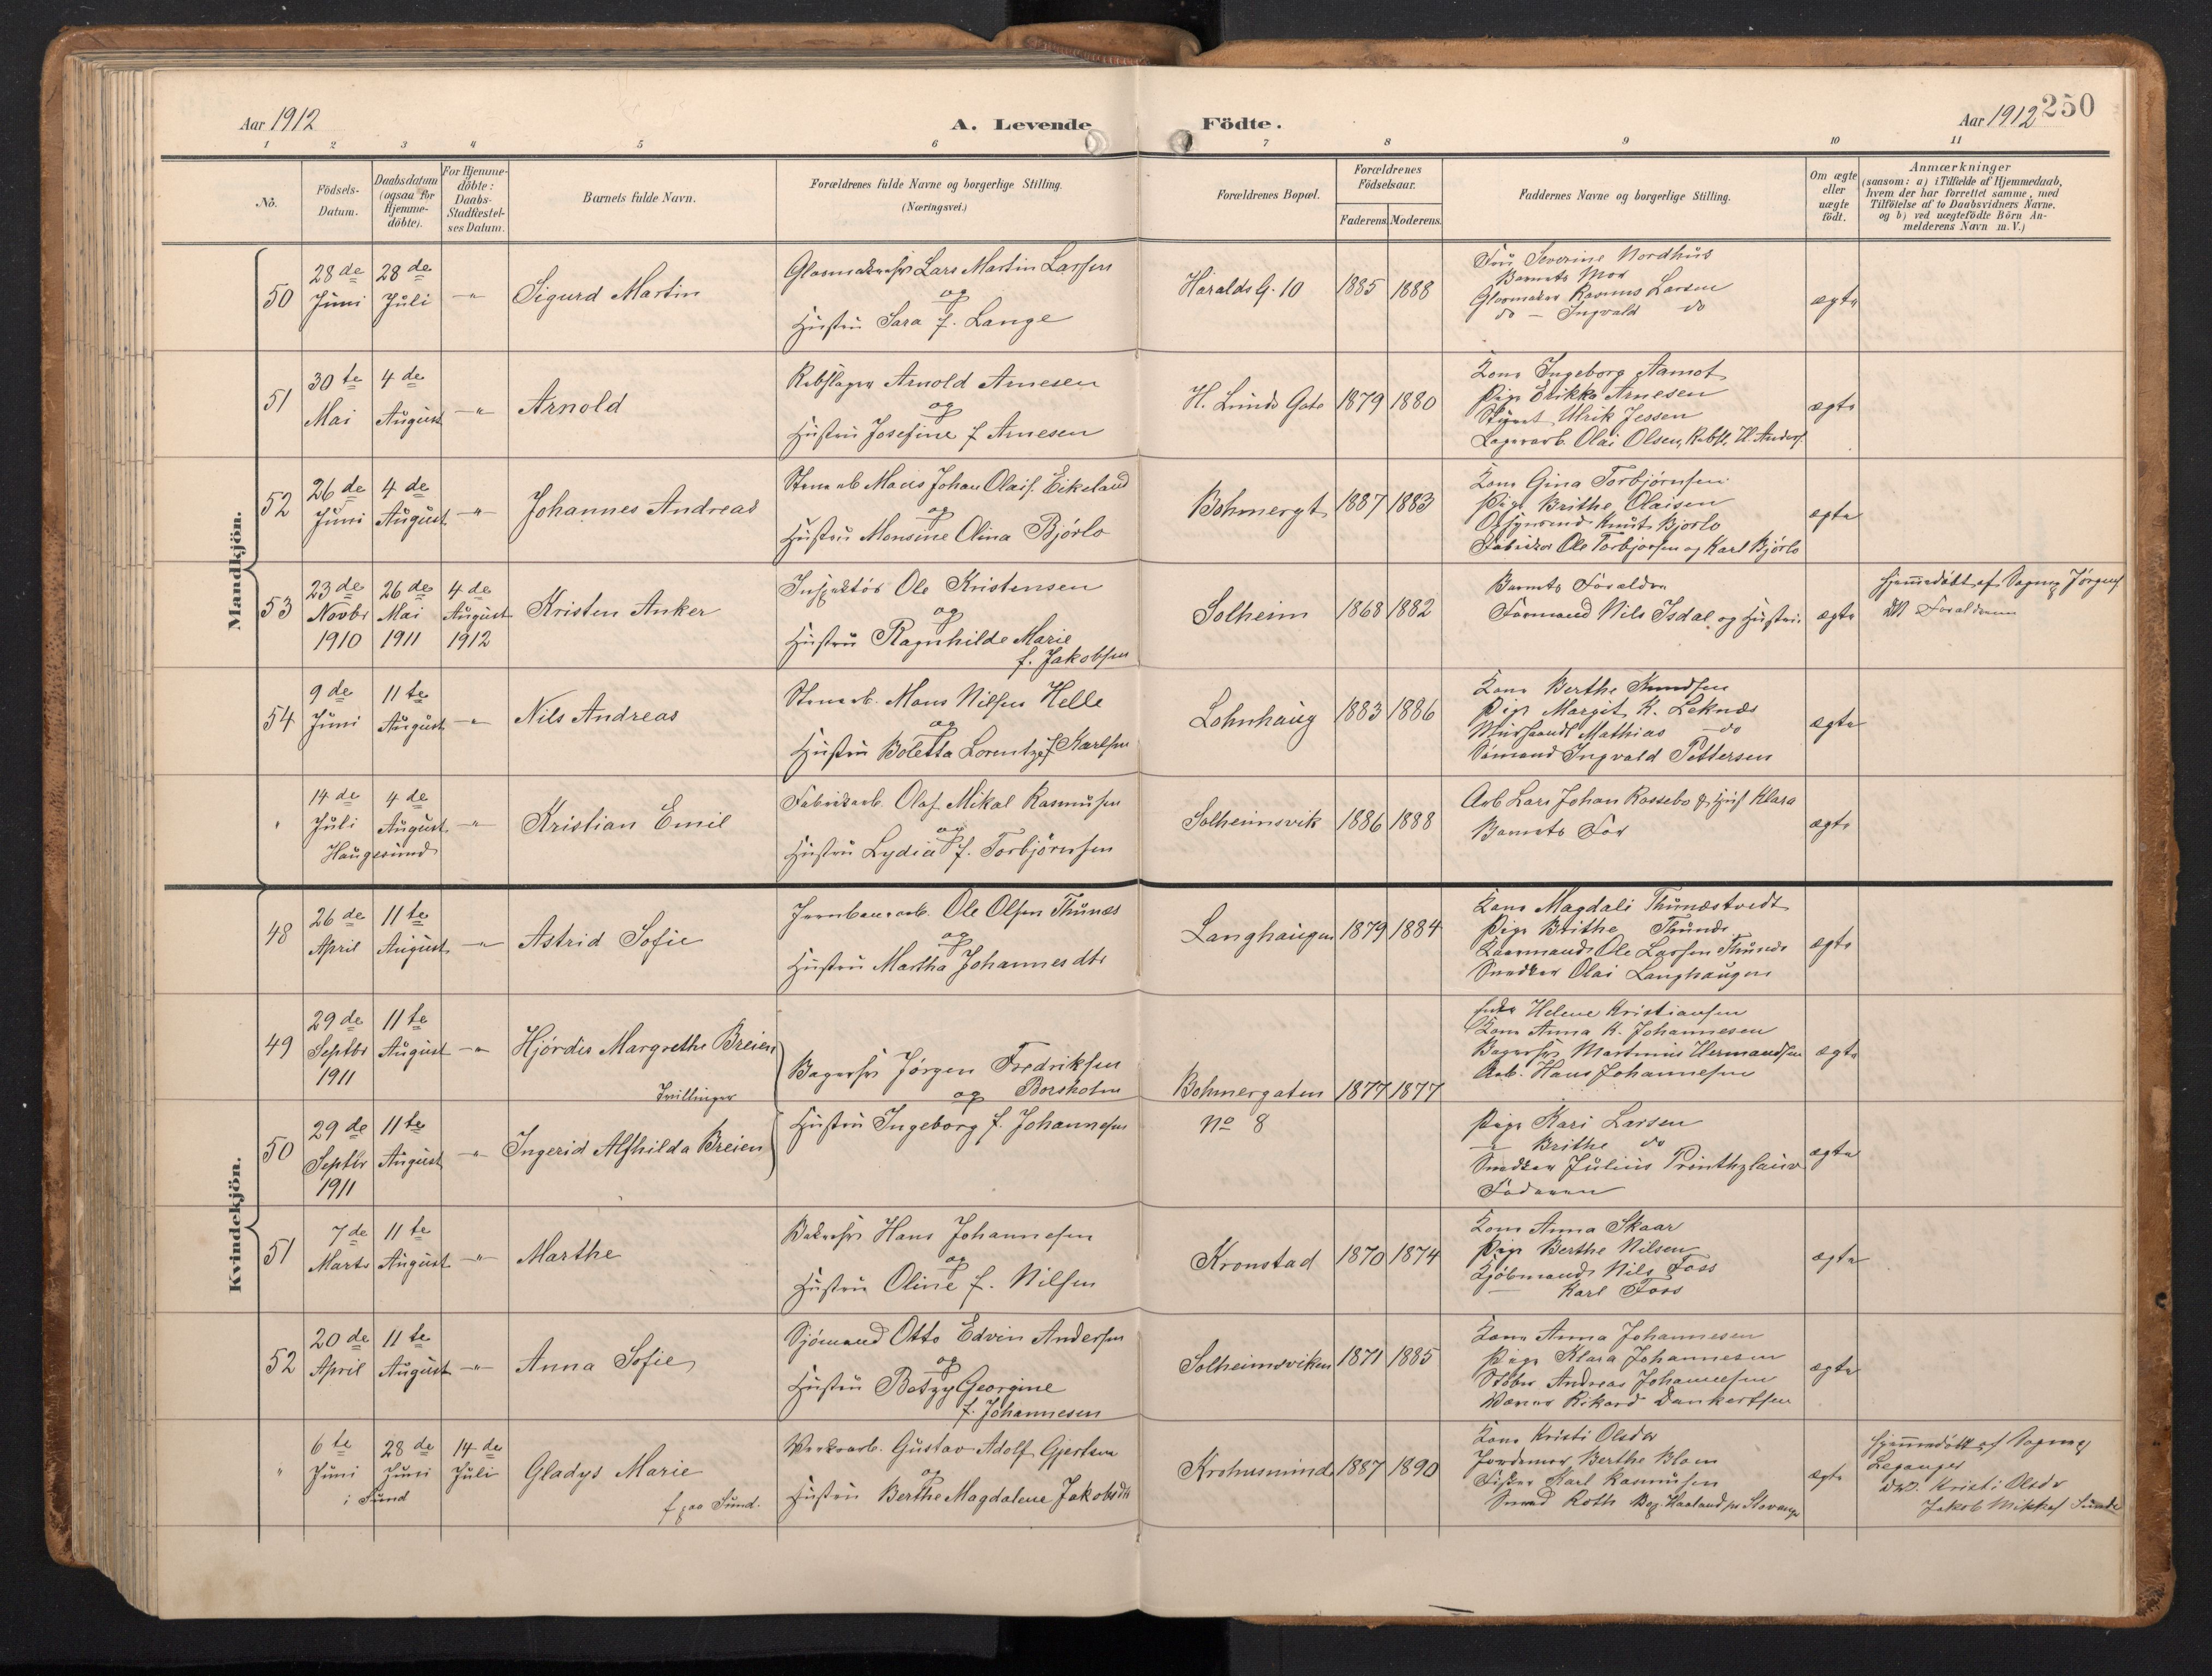 Aar 1912
A. Levende Födte.
Aar 1912
250
1 2 3 4 5 6 7 8 9 10 11
No.
Födsels-Datum.
Daabsdatum (ogsaa for Hjemme-döbte).
For Hjemme-döbte: Daabs-Stadfæstel-ses Datum.
Barnets fulde Navn.
Forældrenes fulde Navne og borgerlige Stilling.
(Næringsvei.)
Forældrenes Bopæl.
Forældrenes Födselsaar.
Faderens. Moderens.
Faddernes Navne og borgerlige Stilling.
Om ægte eller uægte födt.
Anmærkninger
(saasom: a) i Tilfælde af Hjemmedaab,
hvem der har forrettet samme, med
Tilföielse af to Daabsvidners Navne,
og b) ved uægtefödte Börn An-
melderens Navn m. V.)
Mandkjön.
50 28de Juni 28de Juli Sigurd Martin
Lars Martin Larsen
og
Hustru Sara f. Lange
Haralds G. 10 1885 1888
Fru Severine Nordhus
Barnets Mor
Rasmus Larsen
do - Ingvald do
ægte
51 30te Mai 4de August Arnold
Rebslager Arnold Arnesen
og
Hustru Josefine f Arnesen
H. Lunds Gate 1879 1880
Kone Ingeborg Aamot
Pige Erikka Arnesen
Ulrik Jessen
Lagerarb. Olai Olsen,
ægte
52 26de Juni 4de August Johannes Andreas
Johan Olais. Eikeland
og
Hustru Monsine Olina Bjørlo
Bohmergt 1887 1883
Kone Gina Torbjørnsen
Pige Brithe Olaisen
Knut Bjorlo
Ole Torbjørnsen og Karl Bjørlo
ægte
53 23de Novbr 1910 26de Mai 1911 4de August 1912 Kristen Anker
Inspektør Ole Kristensen
og
Hustru Ragnhilde Marie
f. Jakobsen
Solheim 1868 1882
Barnets Forældre
Formand Nils Isdal og Hustru
ægte
Hjemmedøbt af Sognep. Jørgens
DV Forældrene
54 9de Juni 11te August Nils Andreas
Stenarb. Mons Nilsen Helle
og
Hustru Boletta Lorentze f Karlsen
Lohnhaug 1883 1886
Kone Berthe Knudsen
Pige Margit K. Leknes
Mathias do
Sømand Ingvald Pettersen
ægte
" 14de Juli Haugesund 4de August Kristian Emil
Fabrikarb. Olaf Mikal Rasmusen
og
Hustru Lydia f. Torbjörnsen
Solheimsvik 1886 1888
Arb Lars Johan Rossebo & Hus Klara
Barnets Far
ægte
Kvindekjön.
48 26de April 11te August Astrid Sofie
Jernbanearb. Ole Olsen Thunes
og
Hustru Martha Johannesdtr
Langhaugen 1879 1884
Kone Magdali Thunestvedt
Pige Brithe Thunes
Ole Larsen Thunes
Snedker Olai Langhaugen
ægte
49 29de Septbr 1911 11te August Hjørdis Margrethe Breien
Tvillinger
Bagersv Jørgen Fredriksen
og Borsholm
Hustru Ingeborg f. Johannesen
Bohmergaten No 8 1877 1877
Enke Helene Kristiansen
Kone Anna K. Johannesen
Bagersv Martinus Hermansen
Arb. Hans Johannesen
ægte
50 29de Septbr 1911 11te August Ingerid Alfhilda Breien
Pige Kari Larsen
- Brithe do
Snedker Julius Printhzlau
Faderen
ægte
51 7de Marts 11te August Marthe
Hans Johannesen
og
Hustru Oline f. Nilsen
Kronstad 1870 1874
Kone Anna Skaar
Pige Berthe Nilsen
Kjøbmand Nils Foss
Karl Foss
ægte
52 20de April 11te August Anna Sofie
Sjömand Otto Edvin Andersen
og
Hustru Betzy Georgine
f. Johannesen
Solheimsviken 1871 1885
Kone Anna Johannesen
Pige Klara Johannesen
Støber Andreas Johannesen
Rikard Dankertsen
ægte
" 6te Juni i Sund 28de Juni 14de Juli Gladys Marie
f paa Sund.
Gustav Adolf Gjertsen
og
Hustru Berthe Magdalene Jakobsdtr
Krohnsminde 1887 1890
Kone Kristi Olsdr
Jordemor Berthe Blom
Fisker Karl Rasmusen
Roth
ægte
Hjemmedøbt af Sognep
Leganger
DV. Kristi Olsdr
Jakob